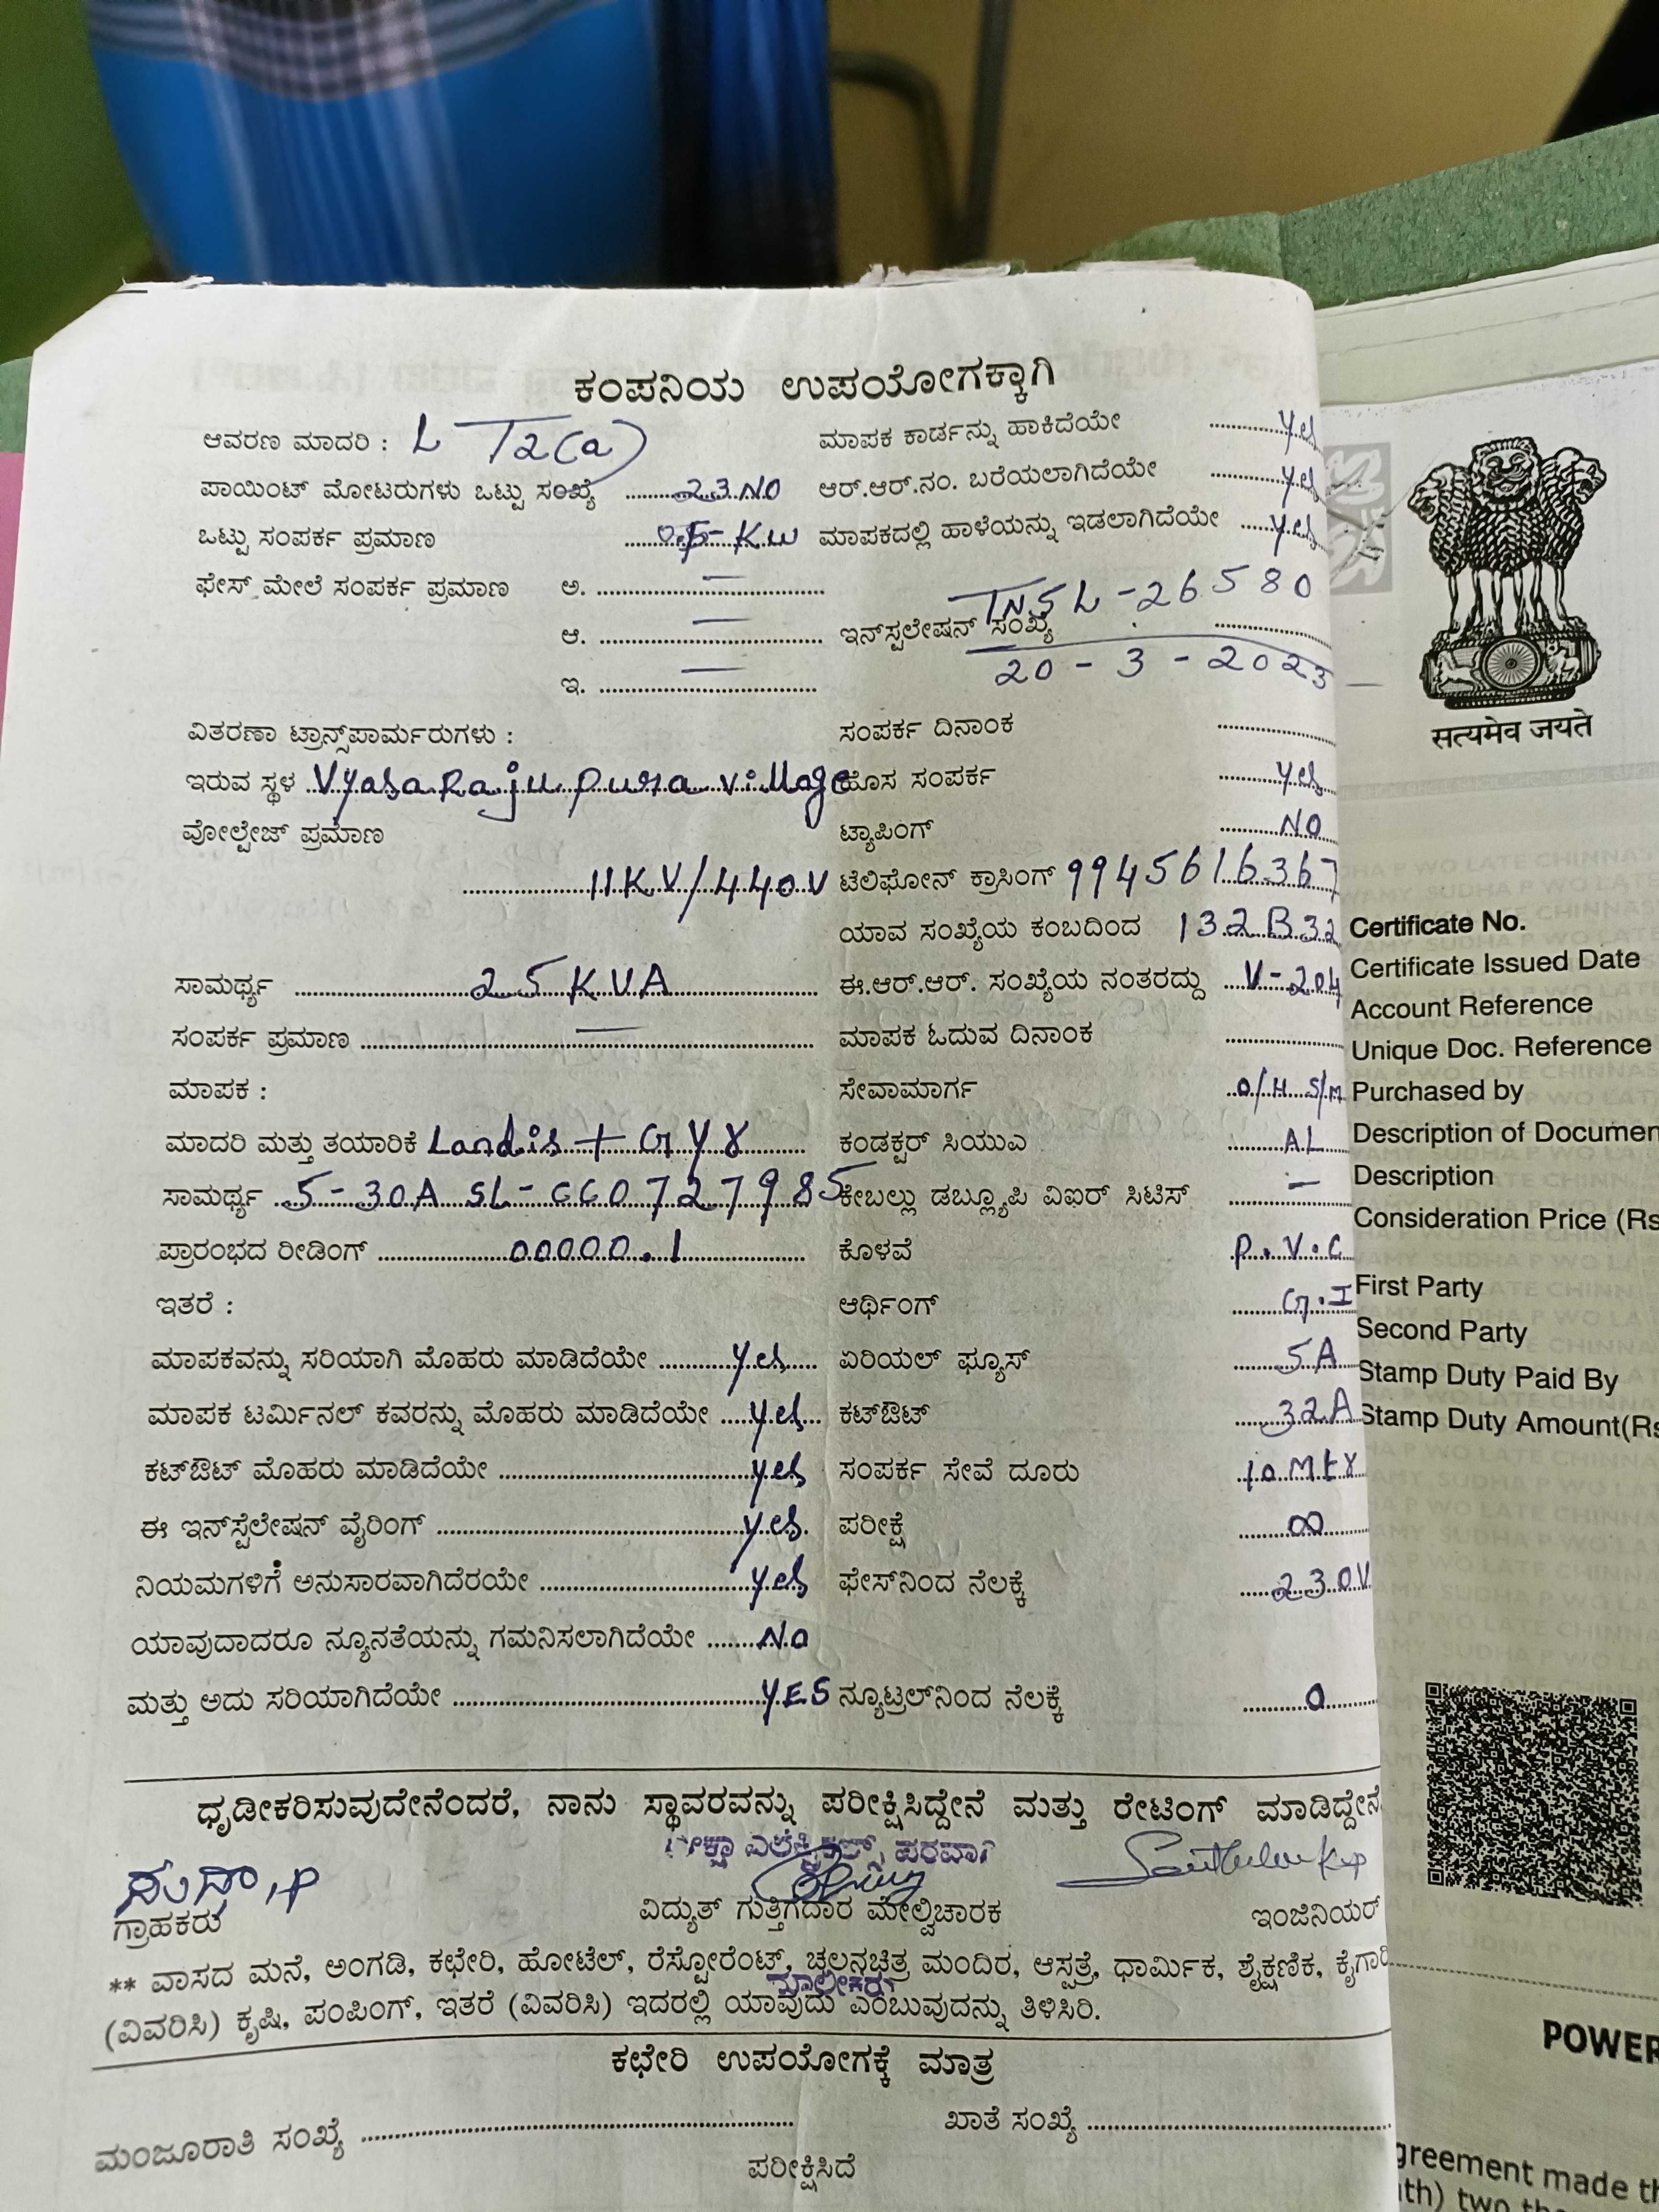 ಕಂಪನಿಯ ಉಪಯೋಗಕ್ಕಾಗಿ
ಆವರಣ ಮಾದರಿ : LT2(a)
ಪಾಯಿಂಟ್ ಮೋಟರುಗಳು ಒಟ್ಟು ಸಂಖ್ಯೆ ........23 NO
ಒಟ್ಟು ಸಂಪರ್ಕ ಪ್ರಮಾಣ ........ KW
ಫೇಸ್ ಮೇಲೆ ಸಂಪರ್ಕ ಪ್ರಮಾಣ ಅ. ........ —
ಆ. ........ —
ಇ. ........ —
ವಿತರಣಾ ಟ್ರಾನ್ಸ್‌ಪಾರ್ಮರುಗಳು :
ಇರುವ ಸ್ಥಳ Vyasarajupura village
ವೋಲ್ಟೇಜ್ ಪ್ರಮಾಣ
........ 11KV/440V
ಸಾಮರ್ಥ್ಯ ........ 25 KVA
ಸಂಪರ್ಕ ಪ್ರಮಾಣ ........ —
ಮಾಪಕ :
ಮಾದರಿ ಮತ್ತು ತಯಾರಿಕೆ Landis + Gyr
ಸಾಮರ್ಥ್ಯ 5-30A SL-
ಪ್ರಾರಂಭದ ರೀಡಿಂಗ್ ........ 00000.1
ಇತರೆ :
ಮಾಪಕವನ್ನು ಸರಿಯಾಗಿ ಮೊಹರು ಮಾಡಿದೆಯೇ ........ yes
ಮಾಪಕ ಟರ್ಮಿನಲ್ ಕವರನ್ನು ಮೊಹರು ಮಾಡಿದೆಯೇ ..... yes
ಕಟ್‌ಔಟ್ ಮೊಹರು ಮಾಡಿದೆಯೇ ........ yes
ಈ ಇನ್‌ಸ್ಟೆಲೇಷನ್ ವೈರಿಂಗ್ ........ yes
ನಿಯಮಗಳಿಗೆ ಅನುಸಾರವಾಗಿದೆರಯೇ ........ yes
ಯಾವುದಾದರೂ ನ್ಯೂನತೆಯನ್ನು ಗಮನಿಸಲಾಗಿದೆಯೇ ........ No
ಮತ್ತು ಅದು ಸರಿಯಾಗಿದೆಯೇ ........ YES
ಮಾಪಕ ಕಾರ್ಡನ್ನು ಹಾಕಿದೆಯೇ ........ yes
ಆರ್.ಆರ್.ನಂ. ಬರೆಯಲಾಗಿದೆಯೇ ........ yes
ಮಾಪಕದಲ್ಲಿ ಹಾಳೆಯನ್ನು ಇಡಲಾಗಿದೆಯೇ ..... yes
TNSL-26580
ಇನ್‌ಸ್ಟಲೇಷನ್ ಸಂಖ್ಯೆ ........
20-3-2023
ಸಂಪರ್ಕ ದಿನಾಂಕ ........
ಹೊಸ ಸಂಪರ್ಕ ........ yes
ಟ್ಯಾಪಿಂಗ್ ........ NO
ಟೆಲಿಫೋನ್ ಕ್ರಾಸಿಂಗ್ 9945616367
ಯಾವ ಸಂಖ್ಯೆಯ ಕಂಬದಿಂದ 132B32
ಈ.ಆರ್.ಆರ್. ಸಂಖ್ಯೆಯ ನಂತರದ್ದು .... V-204
ಮಾಪಕ ಓದುವ ದಿನಾಂಕ ........
ಸೇವಾಮಾರ್ಗ O/H S/M
ಕಂಡಕ್ಟರ್ ಸಿಯುಎ ........ AL
ಕೇಬಲ್ಲು ಡಬ್ಲ್ಯೂಪಿ ವಿಐರ್ ಸಿಟಿಸ್ ........ —
ಕೊಳವೆ P.V.C
ಆರ್ಥಿಂಗ್ ........ G.I
ಏರಿಯಲ್ ಫ್ಯೂಸ್ ........ 5A
ಕಟ್‌ಔಟ್ ........ 32A
ಸಂಪರ್ಕ ಸೇವೆ ದೂರು 10 Mtr
ಪರೀಕ್ಷೆ ........ ∞
ಫೇಸ್‌ನಿಂದ ನೆಲಕ್ಕೆ ........ 230V
ನ್ಯೂಟ್ರಲ್‌ನಿಂದ ನೆಲಕ್ಕೆ ........ 0
ಧೃಡೀಕರಿಸುವುದೇನೆಂದರೆ, ನಾನು ಸ್ಥಾವರವನ್ನು ಪರೀಕ್ಷಿಸಿದ್ದೇನೆ ಮತ್ತು ರೇಟಿಂಗ್ ಮಾಡಿದ್ದೇನೆ
ಎಲೆಕ್ಟ್ರಿಕಲ್ಸ್ ಪರವಾಗಿ
ಸುಧಾ.P
ಗ್ರಾಹಕರು
ವಿದ್ಯುತ್ ಗುತ್ತಿಗೆದಾರ ಮೇಲ್ವಿಚಾರಕ
ಇಂಜಿನಿಯರ್
** ವಾಸದ ಮನೆ, ಅಂಗಡಿ, ಕಛೇರಿ, ಹೋಟೆಲ್, ರೆಸ್ಟೋರೆಂಟ್, ಚಲನಚಿತ್ರ ಮಂದಿರ, ಆಸ್ಪತ್ರೆ, ಧಾರ್ಮಿಕ, ಶೈಕ್ಷಣಿಕ, ಕೈಗಾರಿ
ಮಾಲೀಕರು
(ವಿವರಿಸಿ) ಕೃಷಿ, ಪಂಪಿಂಗ್, ಇತರೆ (ವಿವರಿಸಿ) ಇದರಲ್ಲಿ ಯಾವುದು ಎಂಬುವುದನ್ನು ತಿಳಿಸಿರಿ.
ಕಛೇರಿ ಉಪಯೋಗಕ್ಕೆ ಮಾತ್ರ
ಮಂಜೂರಾತಿ ಸಂಖ್ಯೆ ........ ಖಾತೆ ಸಂಖ್ಯೆ ........
ಪರೀಕ್ಷಿಸಿದೆ
सत्यमेव जयते
Certificate No.
Certificate Issued Date
Account Reference
Unique Doc. Reference
Purchased by
Description of Documen
Description
Consideration Price (Rs
First Party
Second Party
Stamp Duty Paid By
Stamp Duty Amount(Rs
POWER
greement made th
ith) two tho